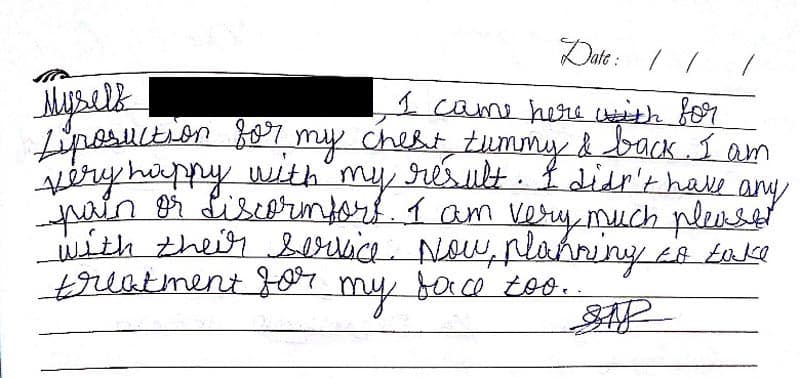 Date: / / /
Myself , I came here with for
Liposuction for my chest tummy & back. I am
very happy with my result. I didn't have any
pain or discormfort. I am very much pleased
with their service. Now, planning to take
treatment for my face too..